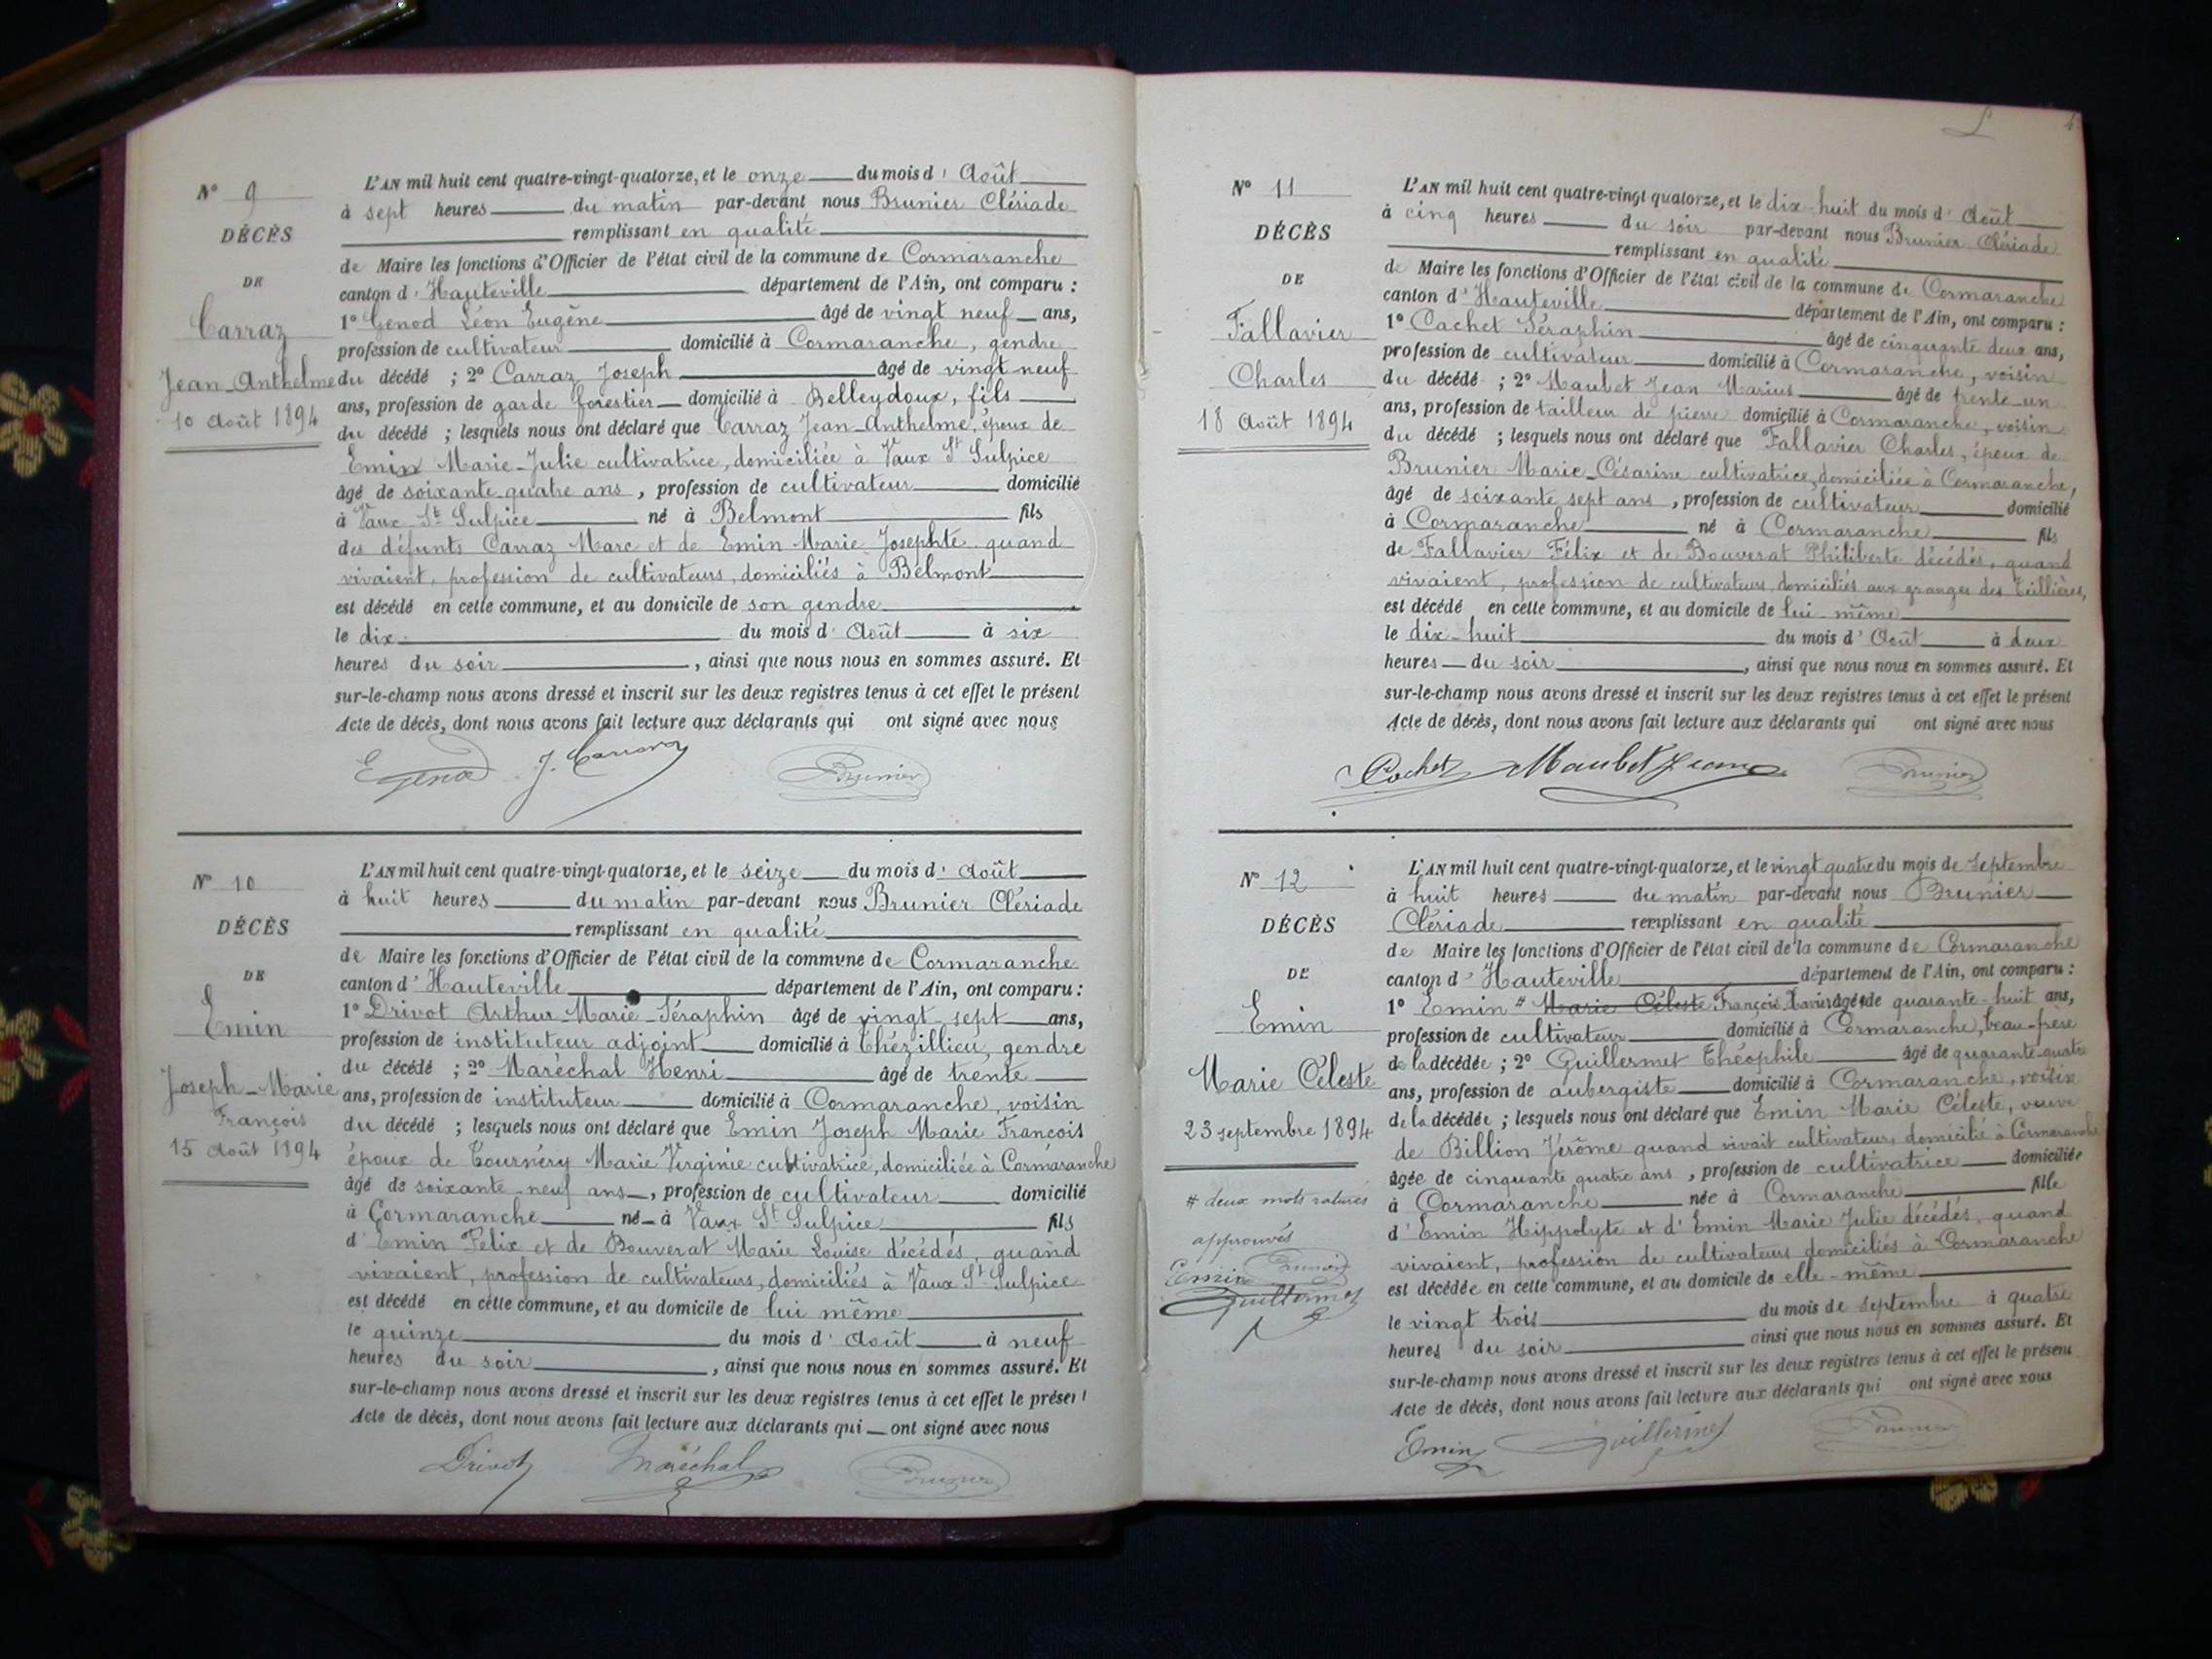 N° 9
DÉCÈS
DE
Carraz
Jean-Anthelme
10 Août 1894
L'AN mil huit cent quatre-vingt-quatorze, et le onze du mois d' Août
à sept heures du matin par-devant nous Brunier Clériade
remplissant en qualité
de Maire les fonctions d'Officier de l'état civil de la commune de Cormaranche
canton d' Hauteville département de l'Ain, ont comparu :
1° Genod Léon Eugène âgé de vingt neuf ans,
profession de cultivateur domicilié à Cormaranche, gendre
du décédé ; 2° Carraz Joseph âgé de vingt neuf
ans, profession de garde forestier domicilié à Belleydoux, fils
du décédé ; lesquels nous ont déclaré que Carraz Jean-Anthelme, époux de
Emin Marie-Julie cultivatrice, domiciliée à Vaux St Sulpice
âgé de soixante-quatre ans, profession de cultivateur domicilié
à Vaux-St-Sulpice né à Belmont fils
des défunts Carraz Marc et de Emin Marie Josephte quand
vivaient, profession de cultivateurs, domiciliés à Belmont
est décédé en cette commune, et au domicile de son gendre
le dix du mois d' Août à six
heures du soir, ainsi que nous nous en sommes assuré. Et
sur-le-champ nous avons dressé et inscrit sur les deux registres tenus à cet effet le présent
Acte de décès, dont nous avons fait lecture aux déclarants qui ont signé avec nous
E Genod J. Carraz Brunier
N° 10
DÉCÈS
DE
Emin
Joseph-Marie
François
15 Août 1894
L'AN mil huit cent quatre-vingt-quatorze, et le seize du mois d' Août
à huit heures du matin par-devant nous Brunier Clériade
remplissant en qualité
de Maire les fonctions d'Officier de l'état civil de la commune de Cormaranche
canton d' Hauteville département de l'Ain, ont comparu :
1° Drivot Arthur-Marie-Séraphin âgé de vingt sept ans,
profession de instituteur adjoint domicilié à Chézillieu, gendre
du décédé ; 2° Maréchal Henri âgé de trente
ans, profession de instituteur domicilié à Cormaranche, voisin
du décédé ; lesquels nous ont déclaré que Emin Joseph Marie François
époux de Tournéry Marie Virginie cultivatrice, domiciliée à Cormaranche
âgé de soixante-neuf ans, profession de cultivateur domicilié
à Cormaranche né à Vaux St Sulpice fils
d' Emin Félix et de Bouverat Marie Louise décédés, quand
vivaient, profession de cultivateurs, domiciliés à Vaux St-Sulpice
est décédé en cette commune, et au domicile de lui même
le quinze du mois d' Août à neuf
heures du soir, ainsi que nous nous en sommes assuré. Et
sur-le-champ nous avons dressé et inscrit sur les deux registres tenus à cet effet le présent
Acte de décès, dont nous avons fait lecture aux déclarants qui ont signé avec nous
Drivot Maréchal Brunier
N° 11
DÉCÈS
DE
Fallavier
Charles
18 Août 1894
L'AN mil huit cent quatre-vingt-quatorze, et le dix-huit du mois d' Août
à cinq heures du soir par-devant nous Brunier Clériade
remplissant en qualité
de Maire les fonctions d'Officier de l'état civil de la commune de Cormaranche
canton d' Hauteville département de l'Ain, ont comparu :
1° Cachet Séraphin âgé de cinquante deux ans,
profession de cultivateur domicilié à Cormaranche, voisin
du décédé ; 2° Maubet Jean Marius âgé de trente-un
ans, profession de tailleur de pierre domicilié à Cormaranche, voisin
du décédé ; lesquels nous ont déclaré que Fallavier Charles, époux de
Brunier Marie-Césarine cultivatrice, domiciliée à Cormaranche,
âgé de soixante sept ans, profession de cultivateur domicilié
à Cormaranche né à Cormaranche fils
de Fallavier Félix et de Bouverat Philiberte décédés, quand
vivaient, profession de cultivateurs, domiciliés aux granges des
est décédé en cette commune, et au domicile de lui-même
le dix-huit du mois d' Août à deux
heures du soir, ainsi que nous nous en sommes assuré. Et
sur-le-champ nous avons dressé et inscrit sur les deux registres tenus à cet effet le présent
Acte de décès, dont nous avons fait lecture aux déclarants qui ont signé avec nous
Cachet Maubet Jean Brunier
N° 12
DÉCÈS
DE
Emin
Marie Céleste
23 septembre 1894
# deux mots raturés
approuvés
Emin Brunier
Guillermet
L'AN mil huit cent quatre-vingt-quatorze, et le vingt quatre du mois de Septembre
à huit heures du matin par-devant nous Brunier
Clériade remplissant en qualité
de Maire les fonctions d'Officier de l'état civil de la commune de Cormaranche
canton d' Hauteville département de l'Ain, ont comparu :
1° Emin # Marie Céleste François Xavier âgé de quarante-huit ans,
profession de cultivateur domicilié à Cormaranche, beau-frère
de la décédée ; 2° Guillermet Théophile âgé de quarante-quatre
ans, profession de aubergiste domicilié à Cormaranche, voisin
de la décédée ; lesquels nous ont déclaré que Emin Marie Céleste, veuve
de Billion Jérôme quand vivait cultivateur, domicilié à Cormaranche
âgée de cinquante quatre ans, profession de cultivatrice domiciliée
à Cormaranche née à Cormaranche fille
d' Emin Hippolyte et d' Emin Marie Julie décédés, quand
vivaient, profession de cultivateurs domiciliés à Cormaranche
est décédée en cette commune, et au domicile de elle-même
le vingt trois du mois de septembre à quatre
heures du soir ainsi que nous nous en sommes assuré. Et
sur-le-champ nous avons dressé et inscrit sur les deux registres tenus à cet effet le présent
Acte de décès, dont nous avons fait lecture aux déclarants qui ont signé avec nous
Emin Guillermet Brunier